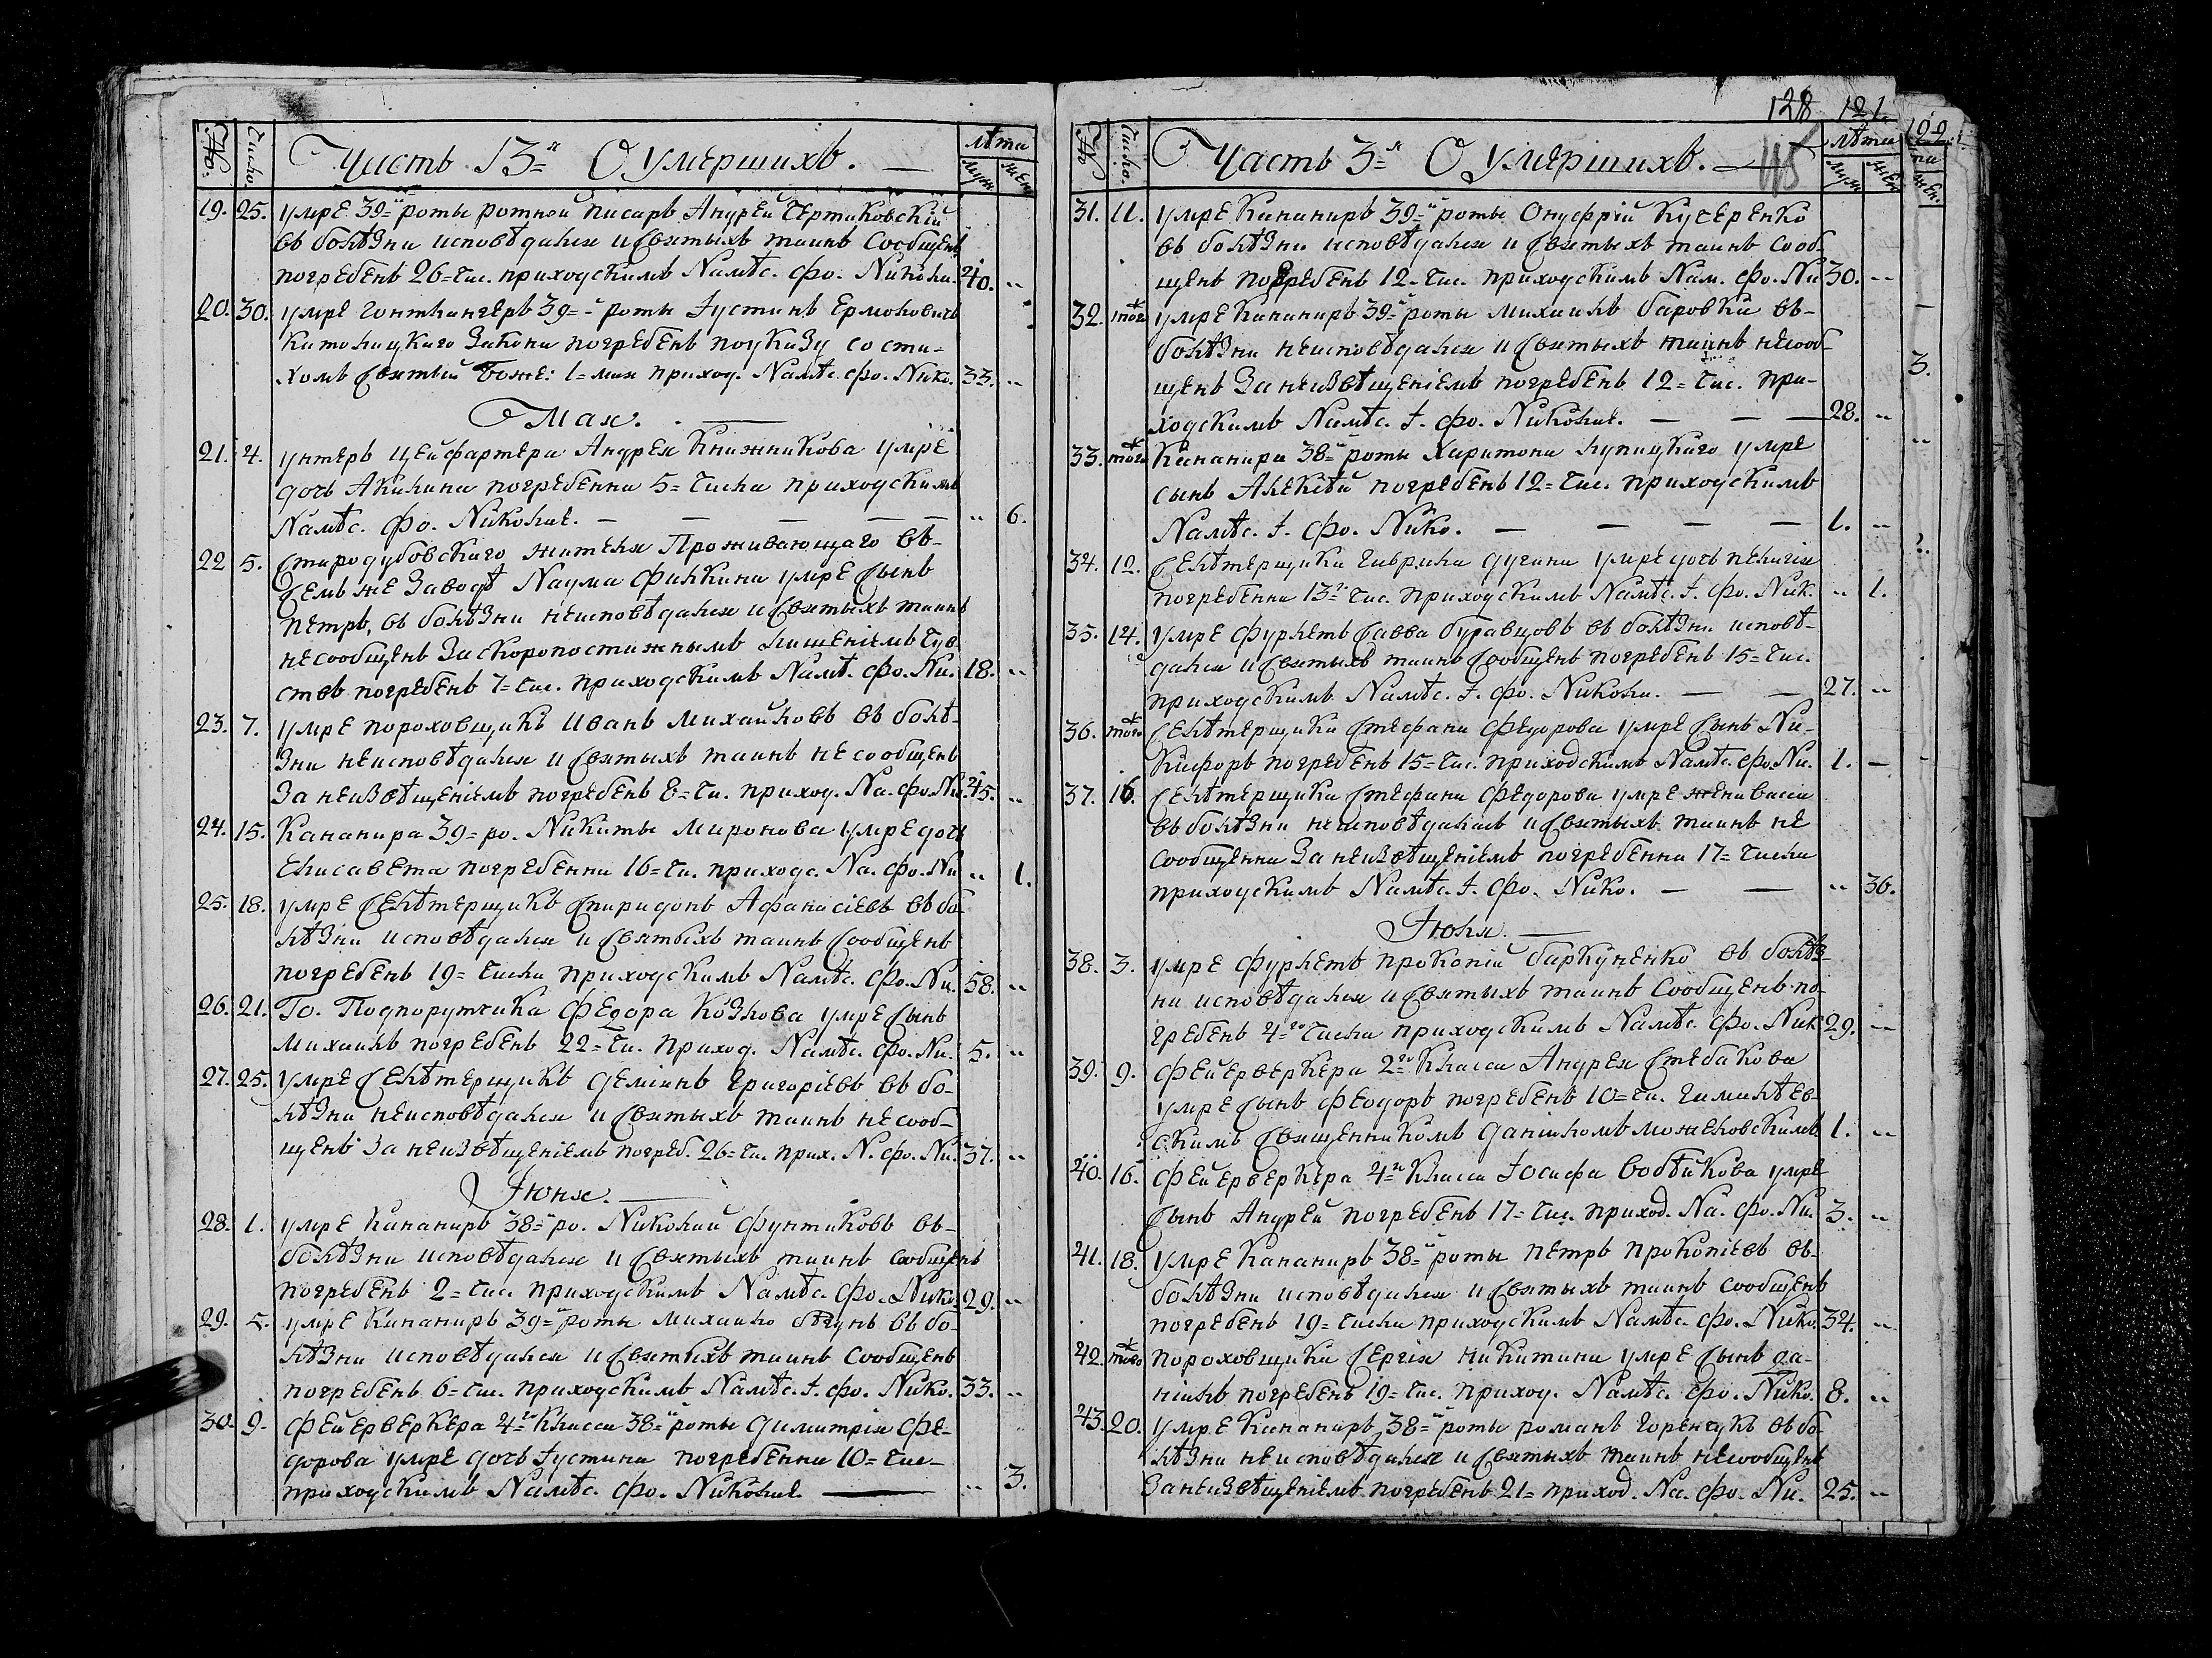 Часть 3=я О умершихъ. —
№.
Число.
лѣта
муж.
жен.
19. 25. умре 39=й роты ротной писарь Андрей Чертиковскій
въ болѣзни исповѣдался и Святыхъ таинъ Сообщенъ
погребенъ 26= чис. приходскимъ Намѣс. Фо. Николи. 40. „
20. 30. умре гонтлангеръ 39=й роты Іустинъ Ермоловичъ
католицкаго Закона погребенъ поуказу со сти-
хомъ Святый Боже: 1= мая приход. Намѣс. Фо. Нико. 33. „
Мая. —
21. 4. унтеръ цейфартера Андрея Книжникова умре
дочь Акилина погребенна 5= числа приходскимъ
Намѣс. Фо. Николае. — — — — — „ 6.
22 5. Стародубовскаго жителя Проживающаго въ-
семъ же Заводѣ Наума Филкина умре Сынъ
петръ, въ болѣзни неисповѣдался и Святыхъ таинъ
несообщенъ За скоропостижнымъ лишеніемъ Чув
ствъ погребенъ 7= чис. приходскимъ Намѣ. Фо. Ни. 18. „
23. 7. умре пороховщикъ Иванъ Михайловъ въ болѣ-
зни неисповѣдался и Святыхъ таинъ несообщенъ
За неизвѣщеніемъ погребенъ 8= чи. приход. На. Фо. Ни. 45. „
24. 15. Кананира 39= ро. Никиты Миронова умре дочь
Елисавета погребенна 16= чи. приходс. На. Фо. Ни „ 1.
25. 18. умре Селѣтерщикъ Спиридонъ Афанасіевъ въ бо-
лѣзни исповѣдался и Святыхъ таинъ Сообщенъ
погребенъ 19= числа приходскимъ Намѣс. Фо. Ни. 58. „
26. 21. Го. Подпорутчика Федора Козлова умре Сынъ
михаилъ погребенъ 22= чи. приход. Намѣс. Фо. Ни. 5. „
27. 25. умре Селѣтерщикъ деміянъ григоріевъ въ бо-
лѣзни неисповѣдался и Святыхъ таинъ несооб-
щенъ За неизвѣщеніемъ погреб. 26= чи. прих. Н. Фо. Ни. 37. „
Іюня. —
28. 1. умре Кананиръ 38=й ро. Николай Фунтиковъ въ-
болѣзни исповѣдался и Святыхъ таинъ сообщенъ
погребенъ 2= чис. приходскимъ Намѣс. Фо. Нико. 29. „
29. 5. умре Кананиръ 39=й роты михайло бѣгунъ въ бо-
лѣзни исповѣдался и Святыхъ таинъ Сообщенъ
погребенъ 6= чис. приходскимъ Намѣс. І. Фо. Нико. 33. „
30. 9. Фейерверкера 4=го Класса 38=й роты димитрія Фе-
дорова умре дочь Іустина погребенна 10= чис-
приходскимъ Намѣс. Фо. Николае. — „ 3.
128 121.
122.
Часть 3=я О умершихъ. —
115
№
Число.
лѣта
муж
жен
та
жен.
31. 11. умре Кананиръ 39=й роты Онуфрій Кучеренко
въ болѣзни исповѣдался и Святыхъ таинъ сооб-
щенъ погребенъ 12= чис. приходскимъ Нам. Фо. Ни 30. „
32. тогож умре Кананиръ 39=й роты михаилъ баровки въ-
болѣзни неисповѣдался и Святыхъ таинъ несооб-
щенъ За неизвѣщеніемъ погребенъ 12= чис. при-
ходскимъ Намѣс. І. Фо. Николае. — — — 28. „
3.
33. тогож Кананира 38=й роты Харитона лупицкаго умре
сынъ Алексѣй погребенъ 12= чис. приходскимъ
Намѣс. І. Фо. Нико. — — — — 1. „
34. 12. Селѣтерщика гаврила дугина умре дочь пелагія
погребенна 13=го чис. приходскимъ Намѣс. І. Фо. Ник. „ 1.
35. 14. умре фурлетъ Савва буравцовъ въ болѣзни исповѣ-
дался и Святыхъ таинъ Сообщенъ погребенъ 15= чис.
приходскимъ Намѣс. І. Фо. Николи. — — 27. „
36. тогож Селѣтерщика Стефана Федорова умре Сынъ Ни-
кифоръ погребенъ 15= чис. приходскимъ Намѣс. Фо. Ни. 1. —
37. 16. Селѣтерщика Стефана Федорова умре жена васса
въ болѣзни неисповѣдалась и Святыхъ таинъ не
Сообщенна За неизвѣщеніемъ погребенна 17= числа
приходскимъ Намѣс. І. Фо. Нико. — — „ 36.
Іюля. —
38. 3. умре фурлетъ прокопій баркуненко въ болѣз-
ни исповѣдался и Святыхъ таинъ Сообщенъ по-
гребенъ 4=го числа приходскимъ Намѣс. Фо. Ник 29. „
39. 9. Фейерверкера 2=го Класса Андрея Стебакова
умре Сынъ Феодоръ погребенъ 10= чи. гамалѣев-
скимъ Священникомъ даніиломъ можековскимъ 1. „
40. 16. Фейерверкера 4=го Класса Іосифа Вобликова умре
Сынъ Андрей погребенъ 17= чис. приход. На. Фо. Ни. 3. „
41. 18. умре Кананиръ 38=й роты петръ прокопіевъ въ-
болѣзни исповѣдался и Святыхъ таинъ сообщенъ
погребенъ 19= числа приходскимъ Намѣс. Фо. Нико. 34. „
42. тогож пороховщика Сергія никитина умре Сынъ да-
ніилъ погребенъ 19= чис. приход. Намѣс. Фо. Нико. 8. „
43. 20. умре Кананиръ 38=й роты романъ горенчукъ въ бо-
лѣзни неисповѣдался и Святыхъ таинъ несообщенъ
За неизвѣщеніемъ погребенъ 21= приход. На. Фо. Ни. 25. „